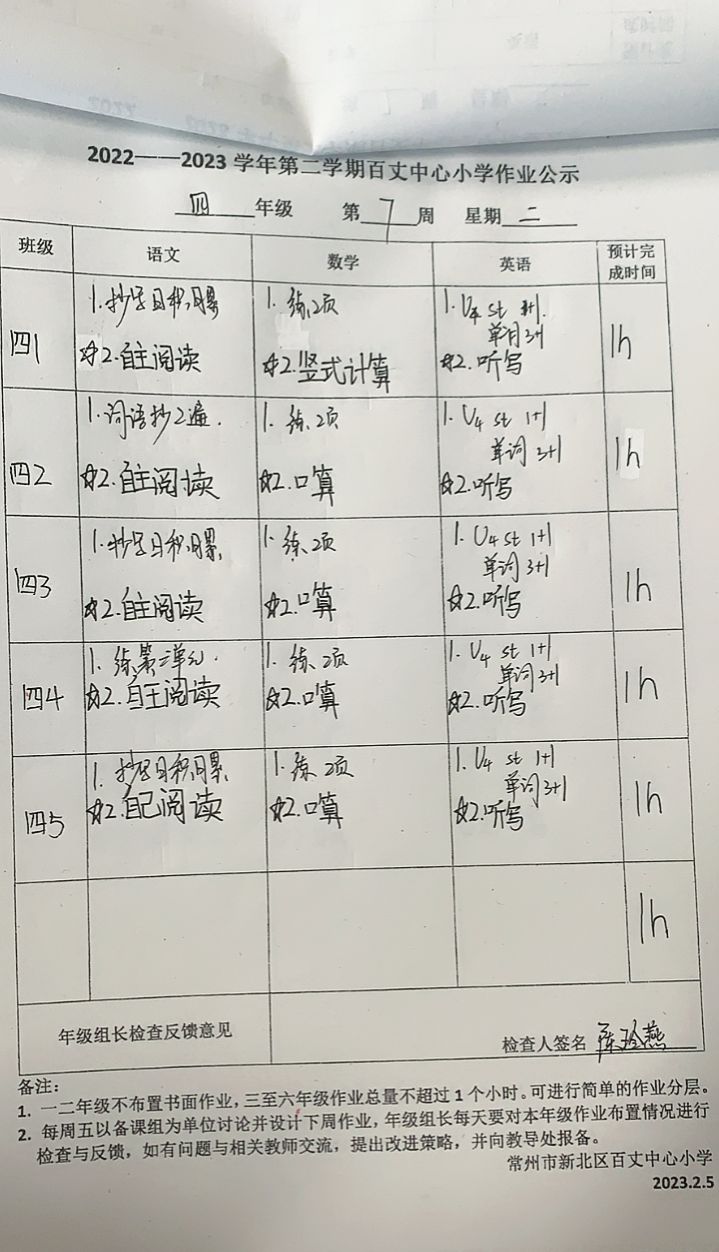 2022——2023学年第二学期百丈中心小学作业公示
四年级 第7周 星期二
班级 语文 数学 英语 预计完成时间
四1
1.抄写日积月累
☆2.自主阅读
1.练2页
☆2.竖式计算
1.U4 st 1+1.
单词3+1
☆2.听写
1h
四2
1.词语抄2遍.
☆2.自主阅读
1.练2页
☆2.口算
1.U4 st 1+1
单词3+1
☆2.听写
1h
四3
1.抄写日积月累.
☆2.自主阅读
1.练2页
☆2.口算
1.U4 st 1+1
单词3+1
☆2.听写
1h
四4
1.练第三单元.
☆2.自主阅读
1.练2页
☆2.口算
1.U4 st 1+1
单词3+1
☆2.听写
1h
四5
1.抄写日积月累.
☆2.自己阅读
1.练2页
☆2.口算
1.U4 st 1+1
单词3+1
☆2.听写
1h
1h
年级组长检查反馈意见
检查人签名 陈玲燕
备注：
1. 一二年级不布置书面作业，三至六年级作业总量不超过1个小时。可进行简单的作业分层。
2. 每周五以备课组为单位讨论并设计下周作业，年级组长每天要对本年级作业布置情况进行
检查与反馈，如有问题与相关教师交流，提出改进策略，并向教导处报备。
常州市新北区百丈中心小学
2023.2.5